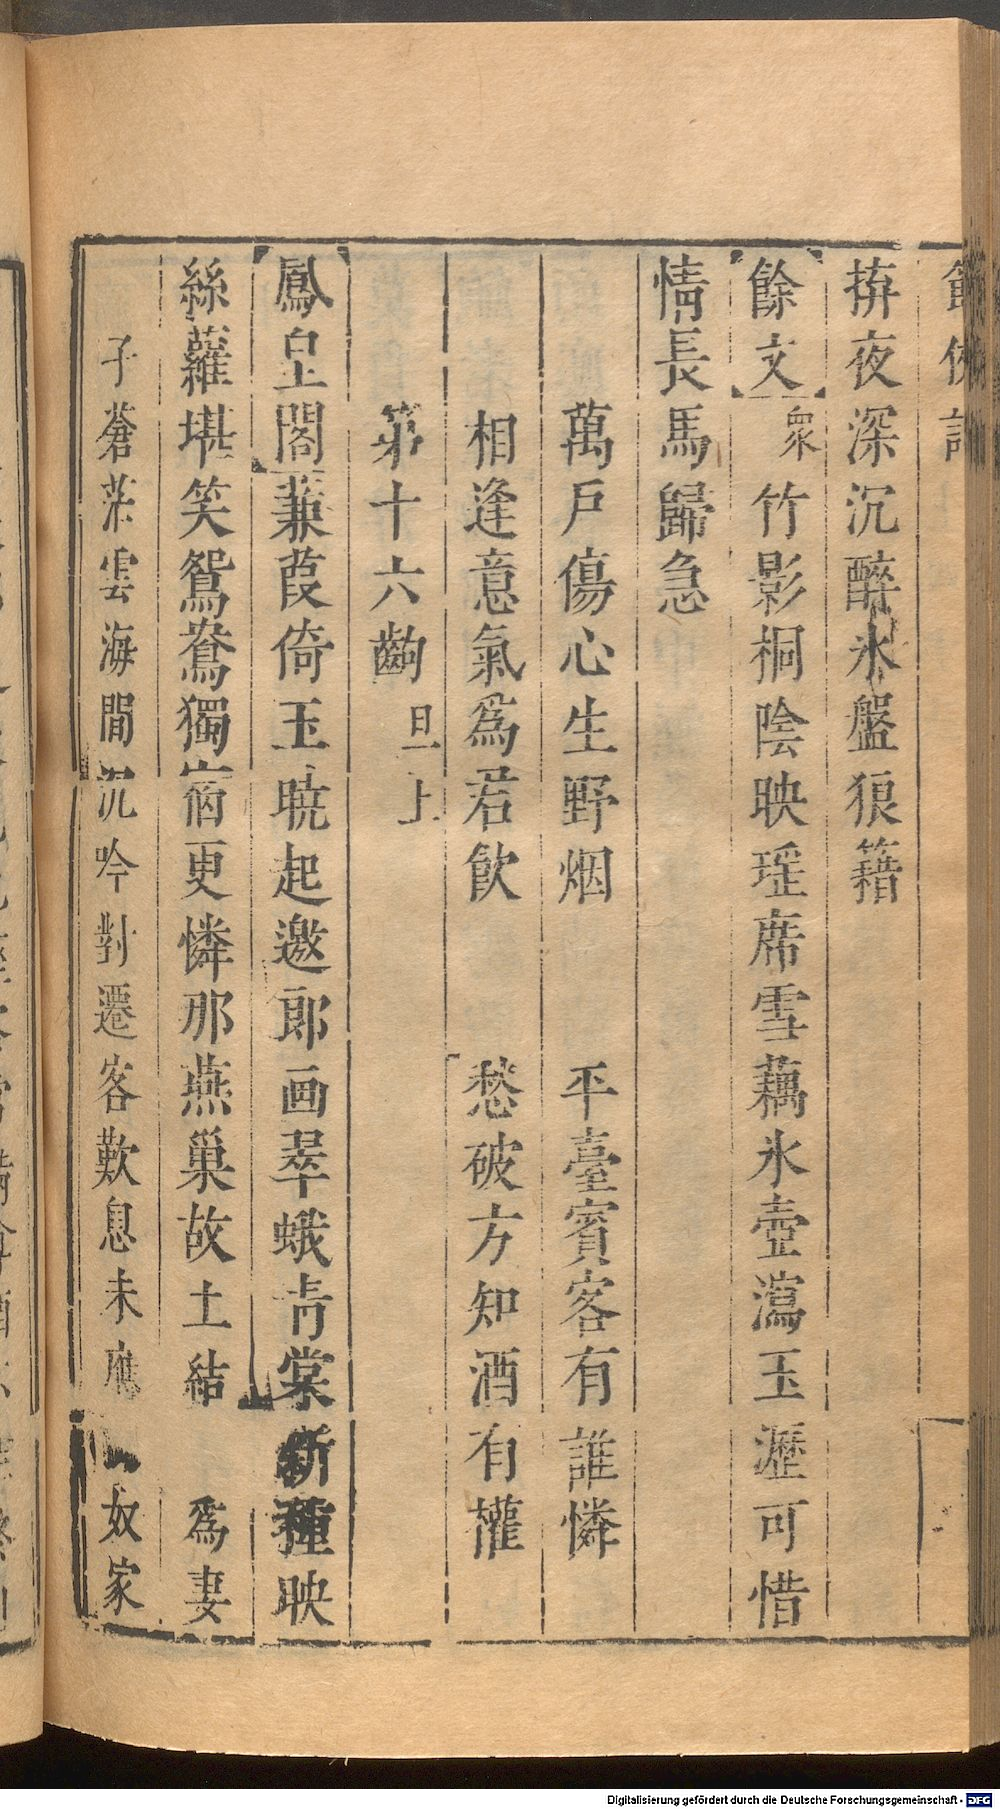 節俠記
拚夜深沉醉氷盤狼籍
餘文 衆 竹影桐陰映瑶席雪藕氷壺瀉玉瀝可惜
情長馬歸急
萬戶傷心生野烟 平臺賓客有誰憐
相逢意氣爲君飲 愁破方知酒有權
第十六齣 旦上
鳳皇閣 蒹葭倚玉曉起邀郎画翠蛾青棠新種映
絲蘿堪笑鴛鴦獨宿更憐那燕巢故土結 爲妻
子蒼茫雲海間沉吟對遷客歎息未應 奴家
Digitalisierung gefördert durch die Deutsche Forschungsgemeinschaft - DFG